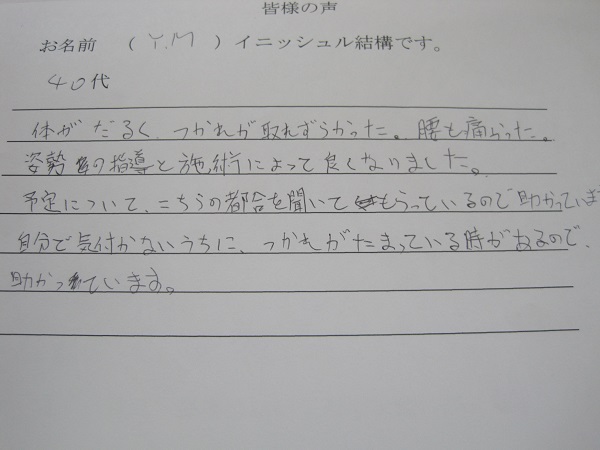 皆様の声
お名前 （ Y.M ）イニッシュル結構です。
40代
体がだるく、つかれが取れずらかった。腰も痛かった。
姿勢の指導と施術によって良くなりました。
予定について、こちらの都合を聞いてもらっているので助かっていま
自分で気付かないうちに、つかれがたまっている時があるので、
助かっています。